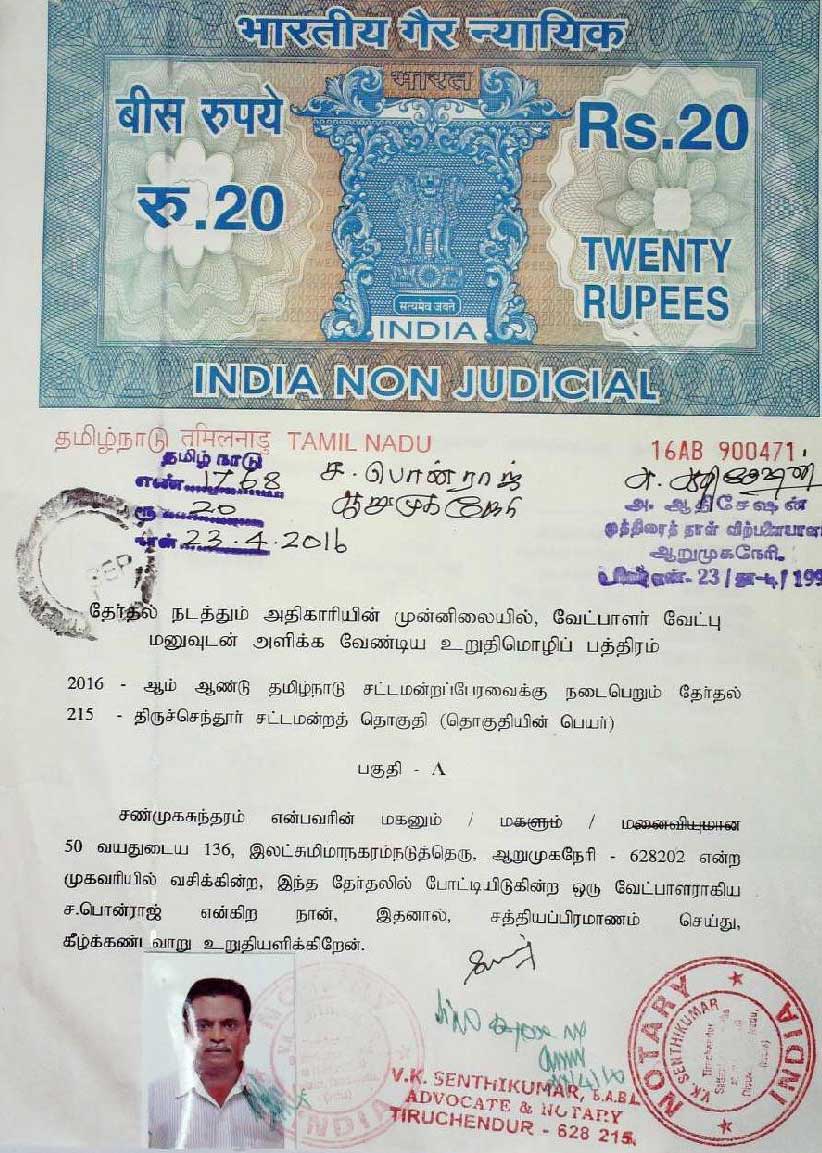 भारतीय गैर न्यायिक
भारत
बीस रुपये
रु.20
Rs.20
TWENTY
RUPEES
सत्यमेव जयते
INDIA
INDIA NON JUDICIAL
தமிழ்நாடு तमिलनाडु TAMIL NADU
16AB 900471
தமிழ் நாடு
எண். 1768
ரூ 20
நாள். 23.4.2016
ச. பொன்ராஜ்
ஆறுமுகநேரி
அ. ஆதிசேஷன்
முத்திரைத் தாள் விற்பனையாள
ஆறுமுகநேரி.
தேர்தல் நடத்தும் அதிகாரியின் முன்னிலையில், வேட்பாளர் வேட்பு
மனுவுடன் அளிக்க வேண்டிய உறுதிமொழிப் பத்திரம்
2016 - ஆம் ஆண்டு தமிழ்நாடு சட்டமன்றப்பேரவைக்கு நடைபெறும் தேர்தல்
215 - திருச்செந்தூர் சட்டமன்றத் தொகுதி (தொகுதியின் பெயர்)
பகுதி - A
சண்முகசுந்தரம் என்பவரின் மகனும் / மகளும் / மனைவியுமான
50 வயதுடைய 136, இலட்சுமிமாநகரம்நடுத்தெரு, ஆறுமுகநேரி - 628202 என்ற
முகவரியில் வசிக்கின்ற, இந்த தேர்தலில் போட்டியிடுகின்ற ஒரு வேட்பாளராகிய
ச.பொன்ராஜ் என்கிற நான், இதனால், சத்தியப்பிரமாணம் செய்து,
கீழ்க்கண்டவாறு உறுதியளிக்கிறேன்.
V.K. SENTHIKUMAR, B.A.B.L.
ADVOCATE & NOTARY
TIRUCHENDUR - 628 215.
NOTARY
V.K. SENTHIKUMAR
INDIA
NOTARY
INDIA